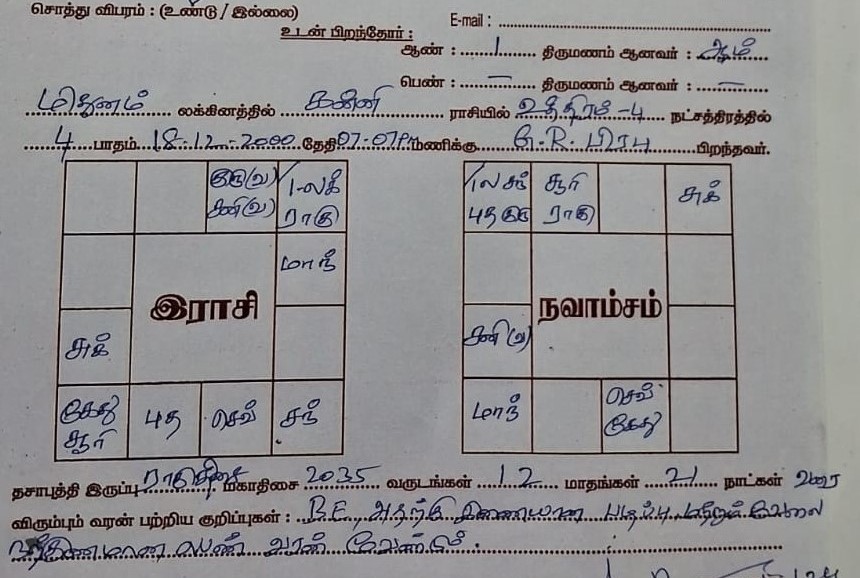 சொத்து விபரம் : (உண்டு / இல்லை)
E-mail :
உடன் பிறந்தோர் :
ஆண் : 1 திருமணம் ஆனவர் : ஆம்
பெண் : — திருமணம் ஆனவர் : —
மிதுனம் லக்கினத்தில் கன்னி ராசியில் உத்திரம் -4 நட்சத்திரத்தில்
4 பாதம் 18.12.-2000 தேதி 07-07PM மணிக்கு G.R. பிரபு பிறந்தவர்.
குரு(வ) 1-லக்
சனி(வ) ராகு
மாந்
இராசி
சுக்
கேது புத செவ் சந்
சூரி
லசந் சூரி சுக்
புத குரு ராகு
நவாம்சம்
சனி(வ)
மாந் செவ்
கேது
தசாபுத்தி இருப்பு ராகுதிசை மகாதிசை 2035 வருடங்கள் 12 மாதங்கள் 21 நாட்கள் வரை
விரும்பும் வரன் பற்றிய குறிப்புகள் : B.E, அதற்கு இணையான படிப்பு மற்றும் வேலை
வரன் வேண்டும்.